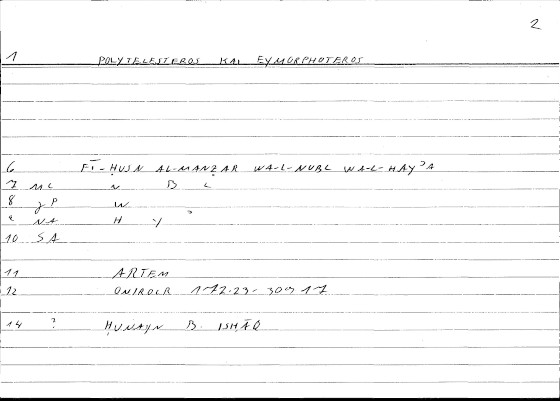 2
1 POLYTELESTEROS KAI EYMORPHOTEROS
6 FĪ-ḤUSN AL-MANẒAR WA-L-NUBL WA-L-HAYʾA
7 ML N B L
8 JP W
9 NA H Y ʾ
10 SA
11 ARTEM
12 ONIROCR 172.23-309 17
14 ? ḤUNAYN B. ISḤĀQ